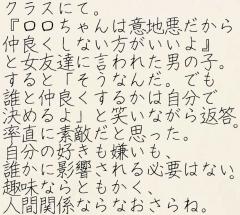 クラスにて。
『ロロちゃんは意地悪だから
仲良くしない方がいいよ』
と女友達に言われた男の子。
すると「そうなんだ。でも
誰と仲良くするかは自分で
決めるよ」と笑いながら返答。
率直に素敵だと思った。
自分の好きも嫌いも、
誰かに影響される必要はない。
趣味ならともかく、
人間関係ならなおさらね。